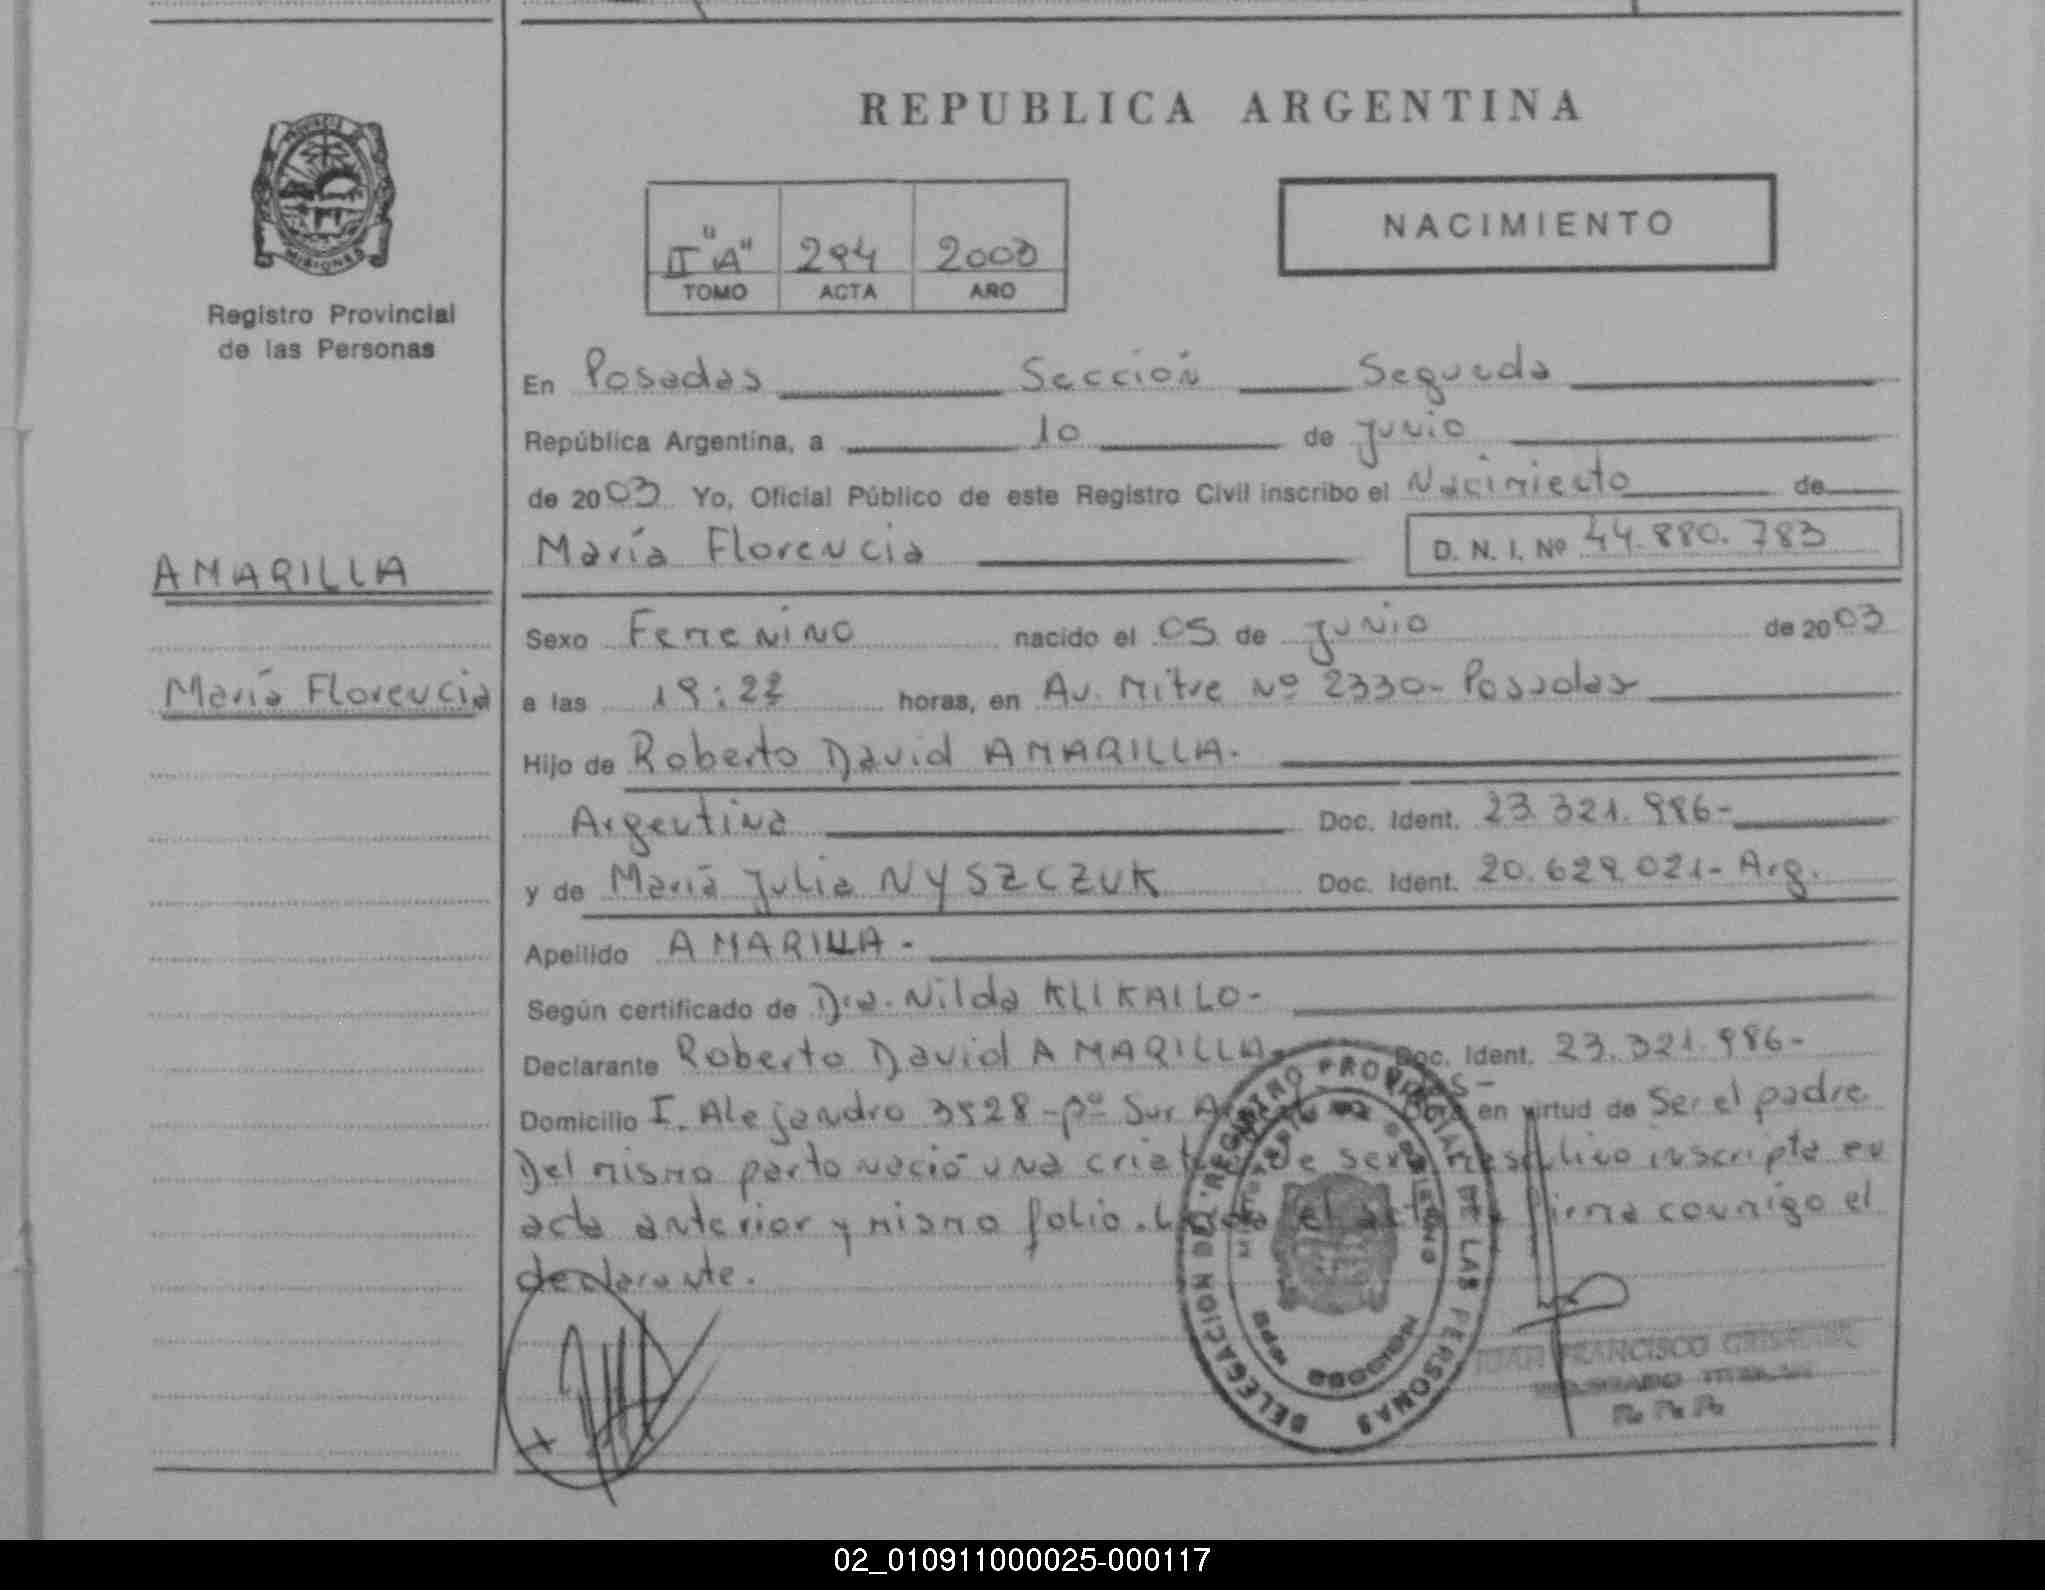 REPUBLICA ARGENTINA
PROVINCIA DE
MISIONES
Registro Provincial
de las Personas
II "A" 294 2003
TOMO ACTA AÑO
NACIMIENTO
En Posadas Sección Segunda
República Argentina, a 10 de junio
de 2003 Yo, Oficial Público de este Registro Civil inscribo el Nacimiento de
AMARILLA
María Florencia
María Florencia D. N. I. Nº 44.880.783
Sexo Femenino nacido el 05 de junio de 2003
a las 19:22 horas, en Av. Mitre Nº 2330- Posadas
Hijo de Roberto David AMARILLA.
Argentina Doc. Ident. 23.321.986-
y de María Julia NYSZCZUK Doc. Ident. 20.629.021- Arg.
Apellido AMARILLA -
Según certificado de Dra. Nilda KLIKAILO-
Declarante Roberto David AMARILLA- Doc. Ident. 23.321.986-
Domicilio I. Alejandro 3528-Pº Sur en virtud de Ser el padre
Del mismo parto nació una criatura de sexo masculino inscripta en
acta anterior y mismo folio. Leída el acta la firma conmigo el
declarante.
DELEGACION DEL REGISTRO PROVINCIAL DE LAS PERSONAS
MINISTERIO DE GOBIERNO
MISIONES
JUAN FRANCISCO
DELEGADO TITULAR
R. P. P.
02_010911000025-000117